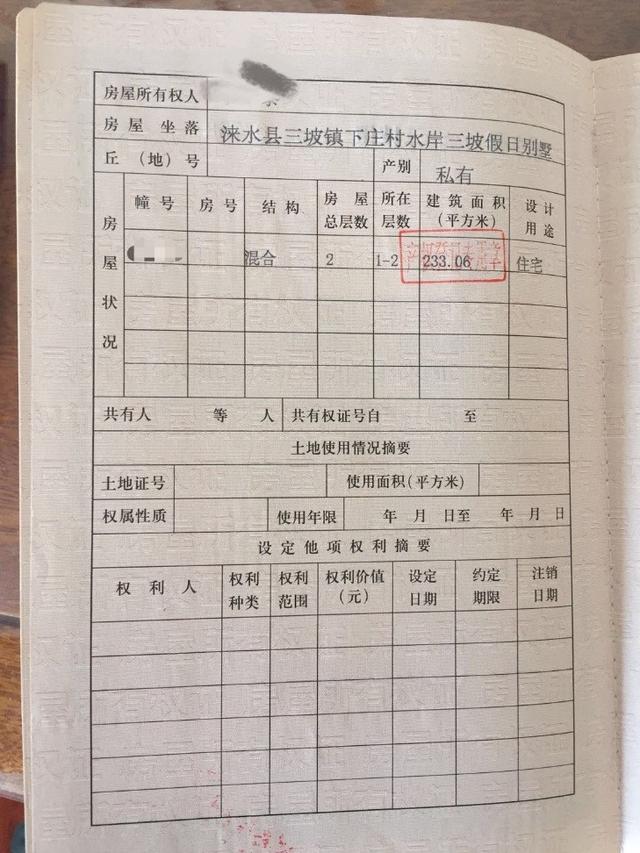 房屋所有权人
房屋坐落 涞水县三坡镇下庄村水岸三坡假日别墅
丘（地）号 产别 私有
房屋状况 幢号 房号 结构 房屋总层数 所在层数 建筑面积（平方米） 设计用途
混合 2 1-2 233.06 住宅
共有人 等 人 共有权证号自 至
土地使用情况摘要
土地证号 使用面积(平方米)
权属性质 使用年限 年 月 日至 年 月 日
设定他项权利摘要
权利人 权利种类 权利范围 权利价值（元） 设定日期 约定期限 注销日期